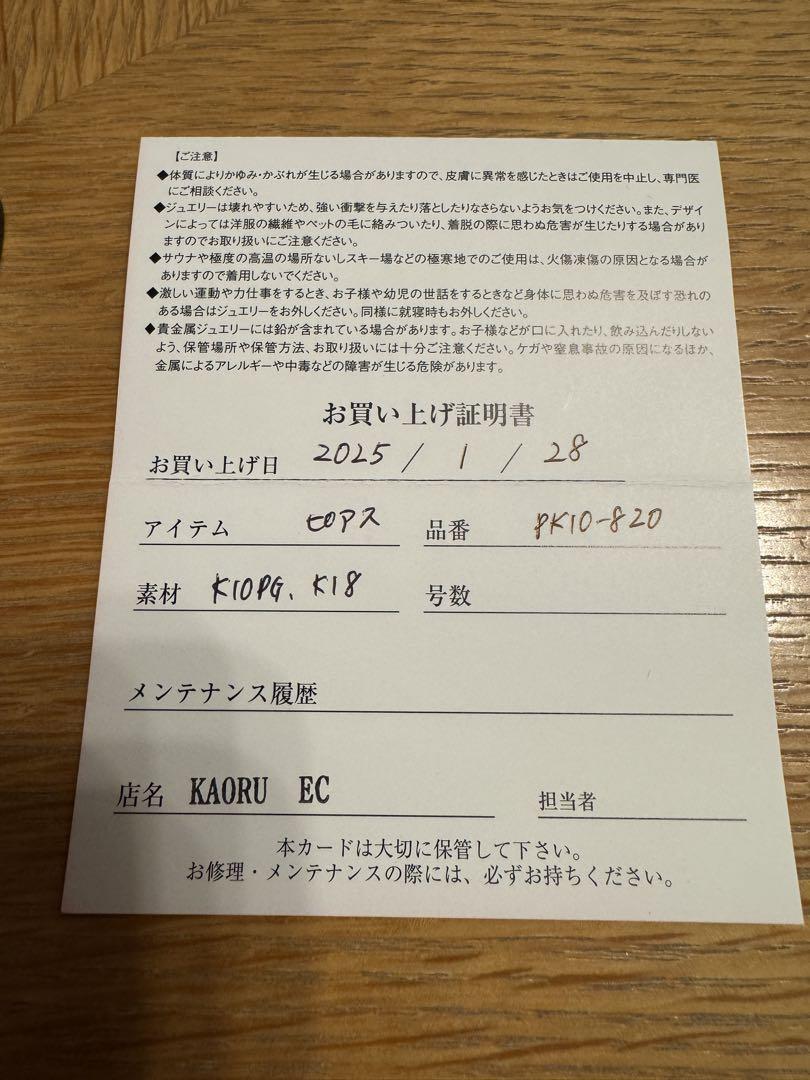 【ご注意】
◆体質によりかゆみ・かぶれが生じる場合がありますので、皮膚に異常を感じたときはご使用を中止し、専門医
にご相談ください。
◆ジュエリーは壊れやすいため、強い衝撃を与えたり落としたりなさらないようお気をつけください。また、デザイ
ンによっては洋服の繊維やペットの毛に絡みついたり、着脱の際に思わぬ危害が生じたりする場合があり
ますのでお取り扱いにご注意ください。
◆サウナや極度の高温の場所ないしスキー場などの極寒地でのご使用は、火傷凍傷の原因となる場合が
ありますので着用しないでください。
◆激しい運動や力仕事をするとき、お子様や幼児の世話をするときなど身体に思わぬ危害を及ぼす恐れの
ある場合はジュエリーをお外しください。同様に就寝時もお外しください。
◆貴金属ジュエリーには鉛が含まれている場合があります。お子様などが口に入れたり、飲み込んだりしない
よう、保管場所や保管方法、お取り扱いには十分ご注意ください。ケガや窒息事故の原因になるほか、
金属によるアレルギーや中毒などの障害が生じる危険があります。
お買い上げ証明書
お買い上げ日 2025 / 1 / 28
アイテム ピアス 品番 PK10-820
素材 K10PG、K18 号数
メンテナンス履歴
店名 KAORU EC 担当者
本カードは大切に保管して下さい。
お修理・メンテナンスの際には、必ずお持ちください。